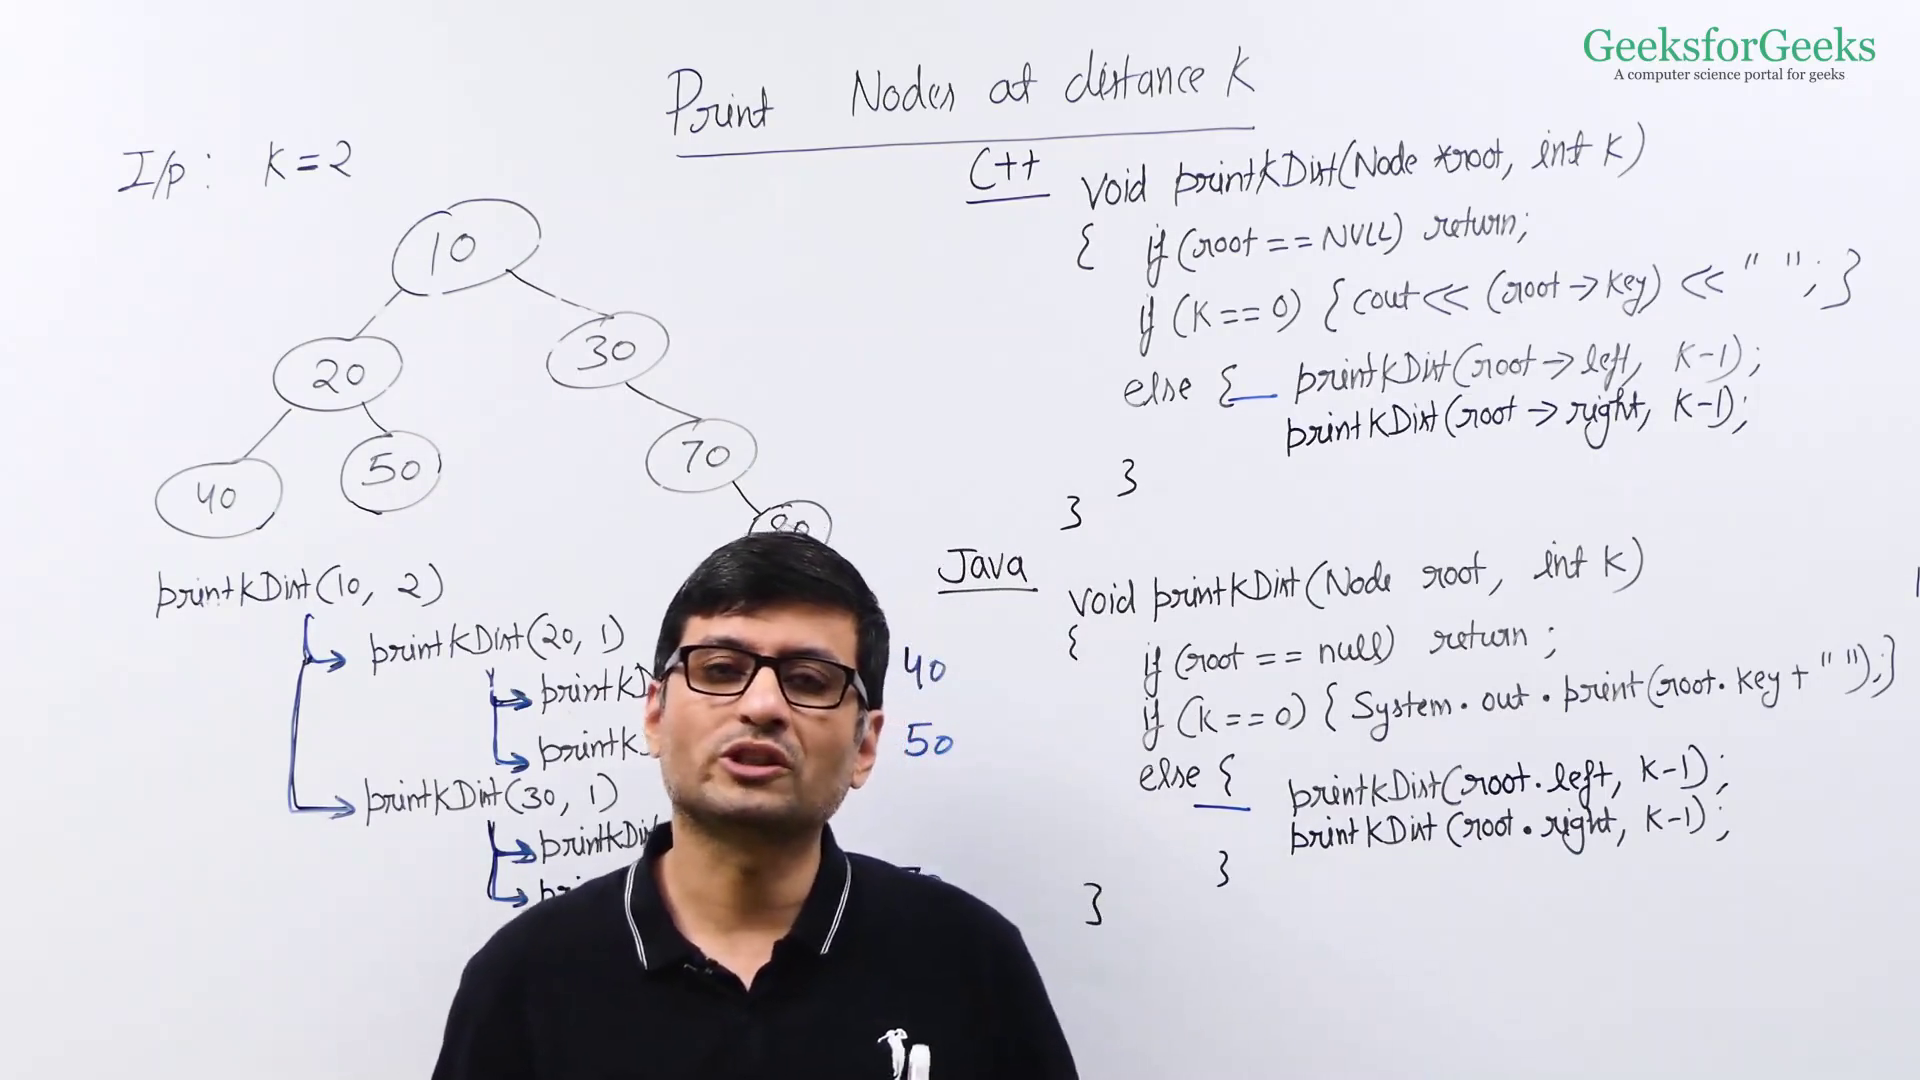 GeeksforGeeks
A computer science portal for geeks
Print Nodes at distance K
I/p: K=2
10
20
30
40
50
70
80
printKDist(10, 2)
printKDist(20, 1)
40
50
printKDist(30, 1)
C++
void printKDist(Node *root, int k)
{ if (root == NULL) return;
if (K == 0) {cout<< (root->key) << " "; }
else { printKDist(root->left, K-1);
printKDist(root->right, K-1);
}
}
Java
void printKDist(Node root, int k)
{ if (root == null) return ;
if (K == 0) { System.out.print(root.key+" ");}
else { printKDist(root.left, K-1);
printKDist(root.right, K-1);
}
}